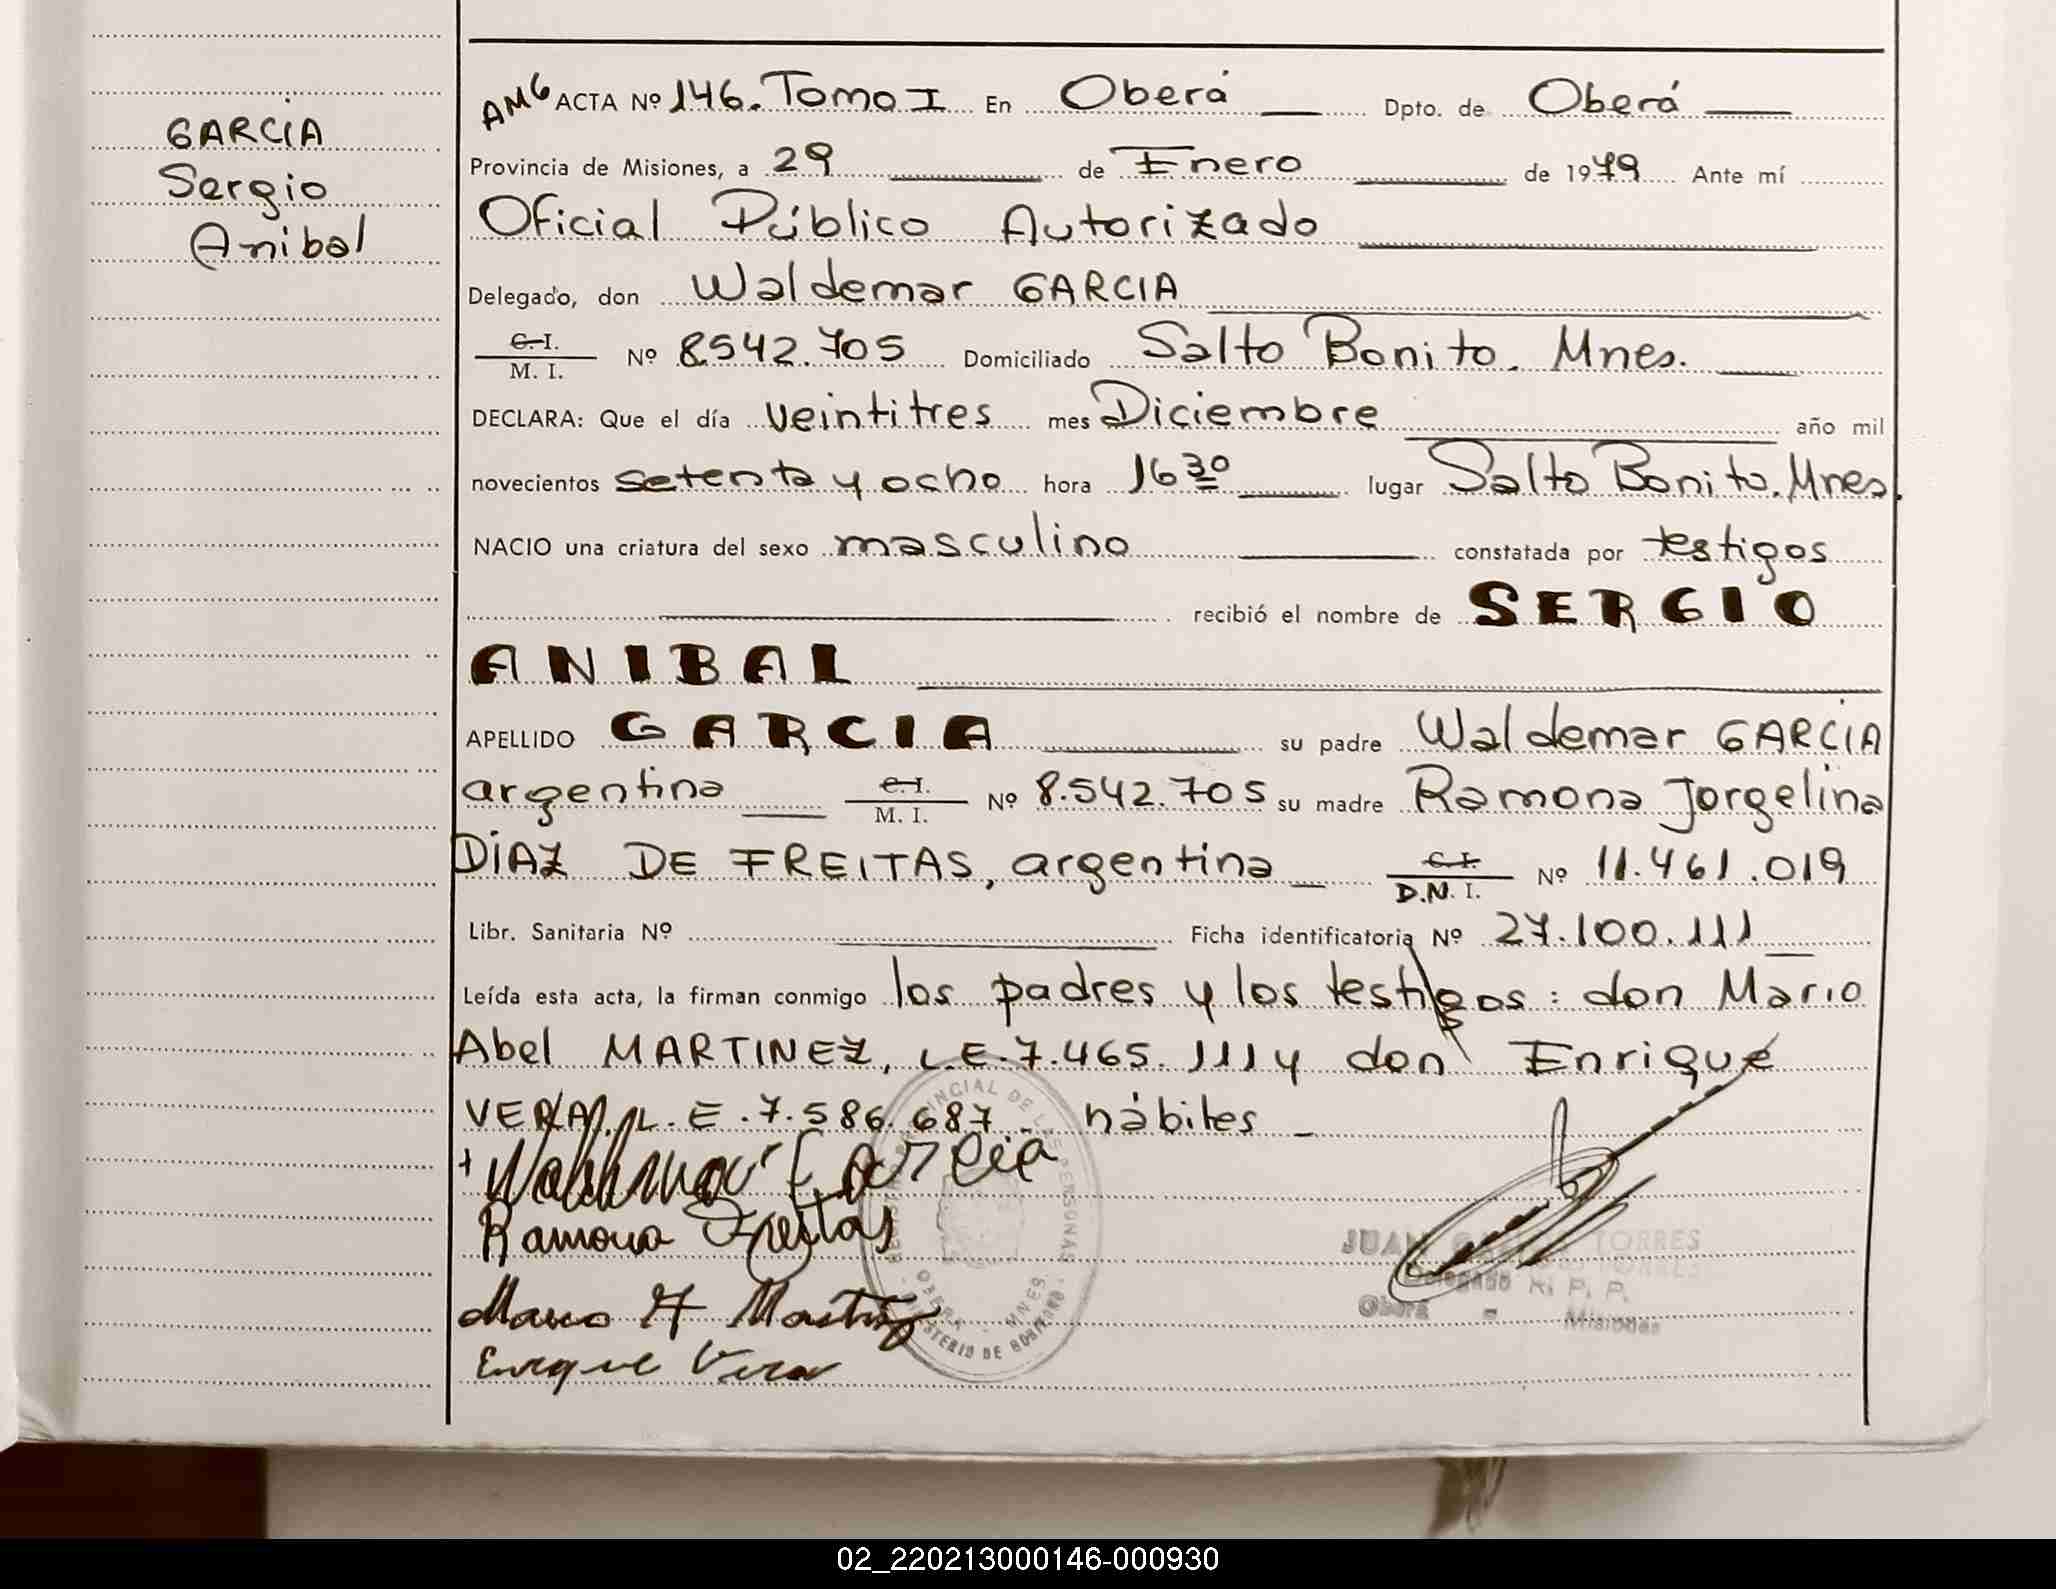 GARCIA
Sergio
Anibal
AMG ACTA Nº 146. Tomo I En Oberá Dpto. de Oberá
Provincia de Misiones, a 29 de Enero de 1979 Ante mí
Oficial Público Autorizado
Delegado, don Waldemar GARCIA
C. I. / M. I. Nº 8542.705 Domiciliado Salto Bonito. Mnes.
DECLARA: Que el día veintitres mes Diciembre año mil
novecientos setenta y ocho hora 16 30 lugar Salto Bonito. Mnes.
NACIO una criatura del sexo masculino constatada por testigos
recibió el nombre de SERGIO
ANIBAL
APELLIDO GARCIA su padre Waldemar GARCIA
argentina C. I. / M. I. Nº 8.542.705 su madre Ramona Jorgelina
DIAZ DE FREITAS, argentina C. I. / D.N. I. Nº 11.461.019
Libr. Sanitaria Nº Ficha identificatoria Nº 27.100.111
Leída esta acta, la firman conmigo los padres y los testigos: don Mario
Abel MARTINEZ, L.E. 7.465.111 y don Enrique
VERA, L.E. 7.586.687. hábiles
Waldemar Garcia
Ramona Freitas
Mario A Martinez
Enrique Vera
REGISTRO PROVINCIAL DE LAS PERSONAS
OBERA - MNES.
MINISTERIO DE GOBIERNO
JUAN TORRES
Delegado R. P. P.
Oberá - Misiones
02_220213000146-000930